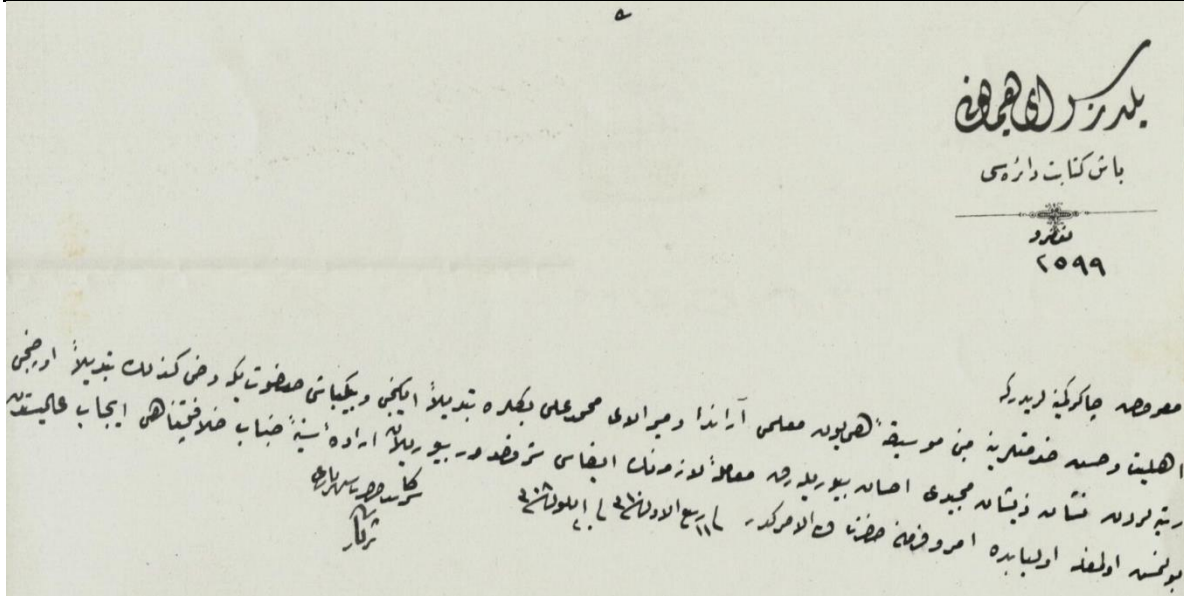 يلديز سراى همايونى
باش كتابت دائره سى
نومرو
٢٥٩٩
معروض چاكر كمينه لريدر كه
اهليت و حسن خدمتلرينه مبنى موسيقۀ همايون معلمى آراندا و ميرالاى محمد على بكلره تبديلاً ايكنجى و بيكباشى صفوت بكه دخى كذلك تبديلاً اوچنجى
رتبه لردن نشان ذيشان مجيدى احسان بيوريله رق معاملۀ لازمه نك ايفاسى شرفصدور بيوريلان ارادۀ سنيۀ جناب خلافتپناهى ايجاب عاليسندن
بولنمش اولمغله اولبابده امر و فرمان حضرت ولى الامركدر فى ١١ ربيع الاول سنه ٣١٠ و فى ٢٠ ايلول سنه ٣٠٨
سركاتب حضرت شهريارى
ثريا